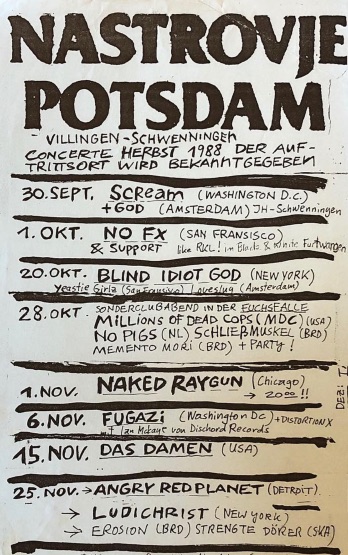 NASTROVJE
POTSDAM
VILLINGEN-SCHWENNINGEN
CONCERTE HERBST 1988 DER AUF-
TRITTSORT WIRD BEKANNTGEGEBEN
30.SEPT. SCREAM (WASHINGTON D.C.)
+GOD (AMSTERDAM) JH-Schwenningen
1.OKT. NO FX (SAN FRANSISCO)
& SUPPORT like RKL! in Black & White Furtwangen
20.OKT. BLIND IDIOT GOD (NEW YORK)
Yeastie Girlz (San Fransisco) Loveslug (Amsterdam)
28.OKT. SONDERCLUBABEND IN DER FUCHSFALLE
MILLIONS OF DEAD COPS (MDC) (USA)
NO PIGS (NL) SCHLIEßMUSKEL (BRD)
MEMENTO MORI (BRD) + PARTY!
1.NOV. NAKED RAYGUN (Chicago)
→ 20°° !!
6.NOV. FUGAZI (Washington DC) +DISTORTION X
Ian McKaye von Dischord Records
15.NOV. DAS DAMEN (USA)
25.NOV.→ANGRY RED PLANET (DETROIT)
→ LUDICHRIST (NEW YORK)
→ EROSION (BRD) STRENGTE DÖRER (SKA)